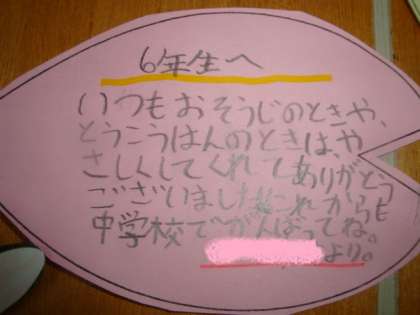 6年生へ
いつもおそうじのときや、
とうこうはんのときは、や
さしくしてくれてありがとう
ございました!!これからも
中学校でがんばってね。
より。